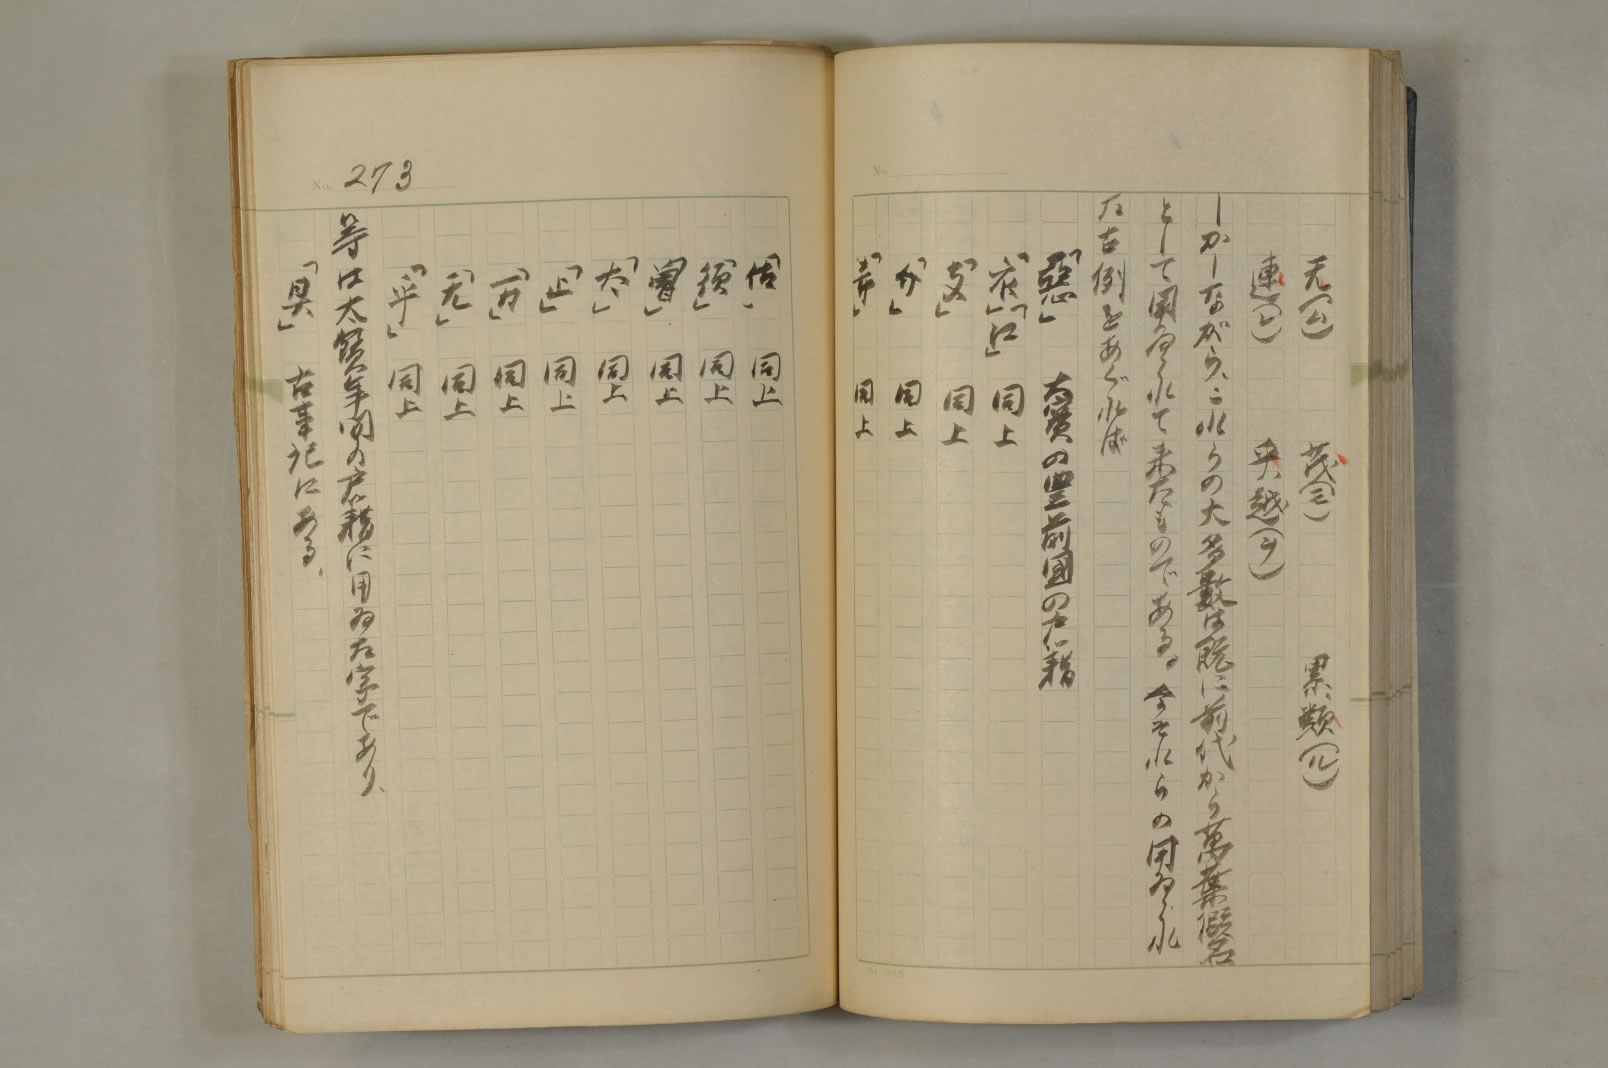 No.
无(ム) 茂(モ) 累、類(ル)
連(レ) 乎、越(ヲ)
しかしながら、これらの大多數は既に前代から萬葉假名
として用ゐられて来たものである。今それらの用ゐられ
た古例をあぐれば
「惡」 大寶の豊前國の戸籍
「衣」「江」 同上
「支」 同上
「介」 同上
同上
No. 273
「佐」 同上
「須」 同上
「曾」 同上
「太」 同上
「止」 同上
同上
「无」 同上
「乎」 同上
等は大寳年間の戸籍に用ゐた字であり、
「具」 古事記にある、